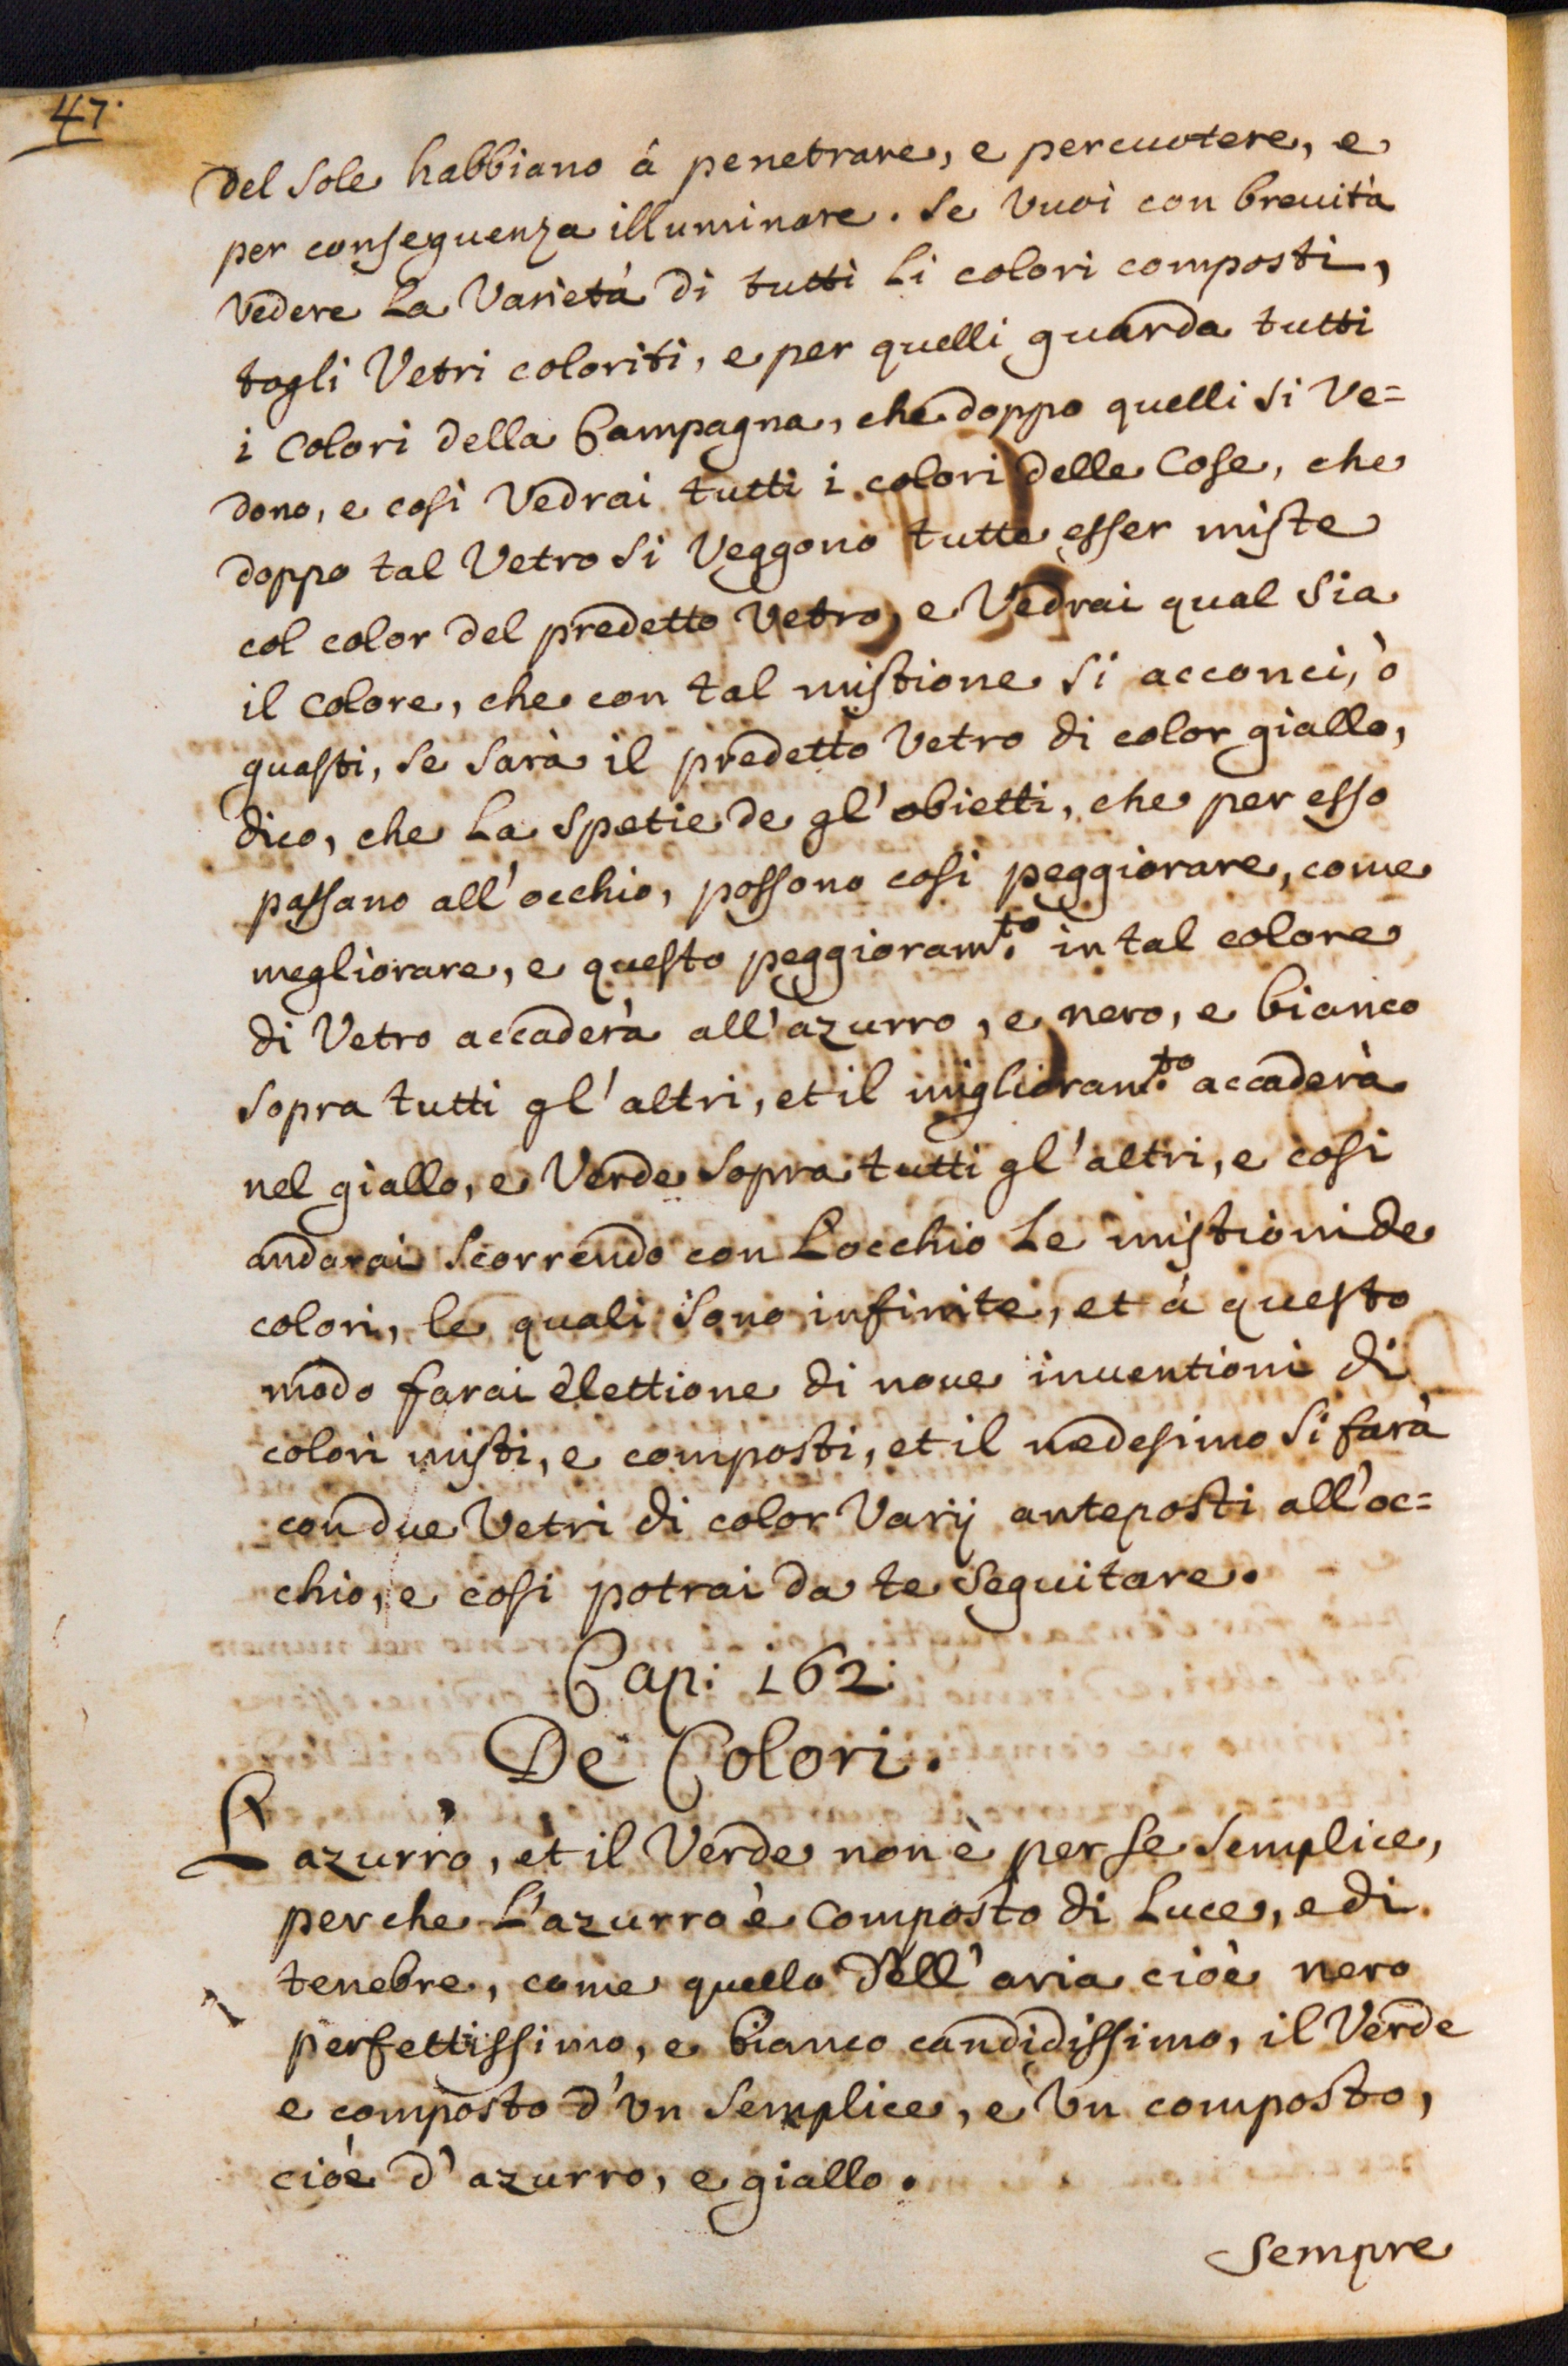 47.
del sole habbiano á penetrare, e percuotere, e
per conseguenza illuminare. se vuoi con breuità
vedere la Varietá di tutti li colori composti,
togli Vetri coloriti, e per quelli guarda tutti
i Colori della Campagna, che doppo quelli si Ve=
dono, e cosi Vedrai tutti i colori delle Cose, che
doppo tal Vetro si Veggono tutte esser miste
col color del predetto Vetro, e Vedrai qual sia
il colore, che con tal mistione si acconci, ò
guasti, se sarà il predetto Vetro di color giallo,
dico, che la spetie de gl'obietti, che per esso
passano all'occhio, possono cosi peggiorare, come
megliorare, e questo peggioram.to in tal colore
di Vetro accaderà all'azurro, e nero, e bianco
sopra tutti gl'altri, et il miglioram.to accaderà
nel giallo, e Verde sopra tutti gl'altri, e cosi
andarai scorrendo con L'occhio le mistioni de
colori, le quali sono infinite, et á questo
modo farai elettione di noue inuentioni di
colori misti, e composti, et il medesimo si farà
con due Vetri di color Varij anteposti all'oc=
chio, e cosi potrai da te seguitare.
Cap: 162:
De Colori.
L'azurro, et il Verde non è per se semplice,
perche L'azurro è composto di luce, e di
tenebre, come quello dell'aria cioè nero
perfettissimo, e bianco candidissimo, il Verde
e composto d'un semplice, e un composto,
cioè d'azurro, e giallo.
sempre